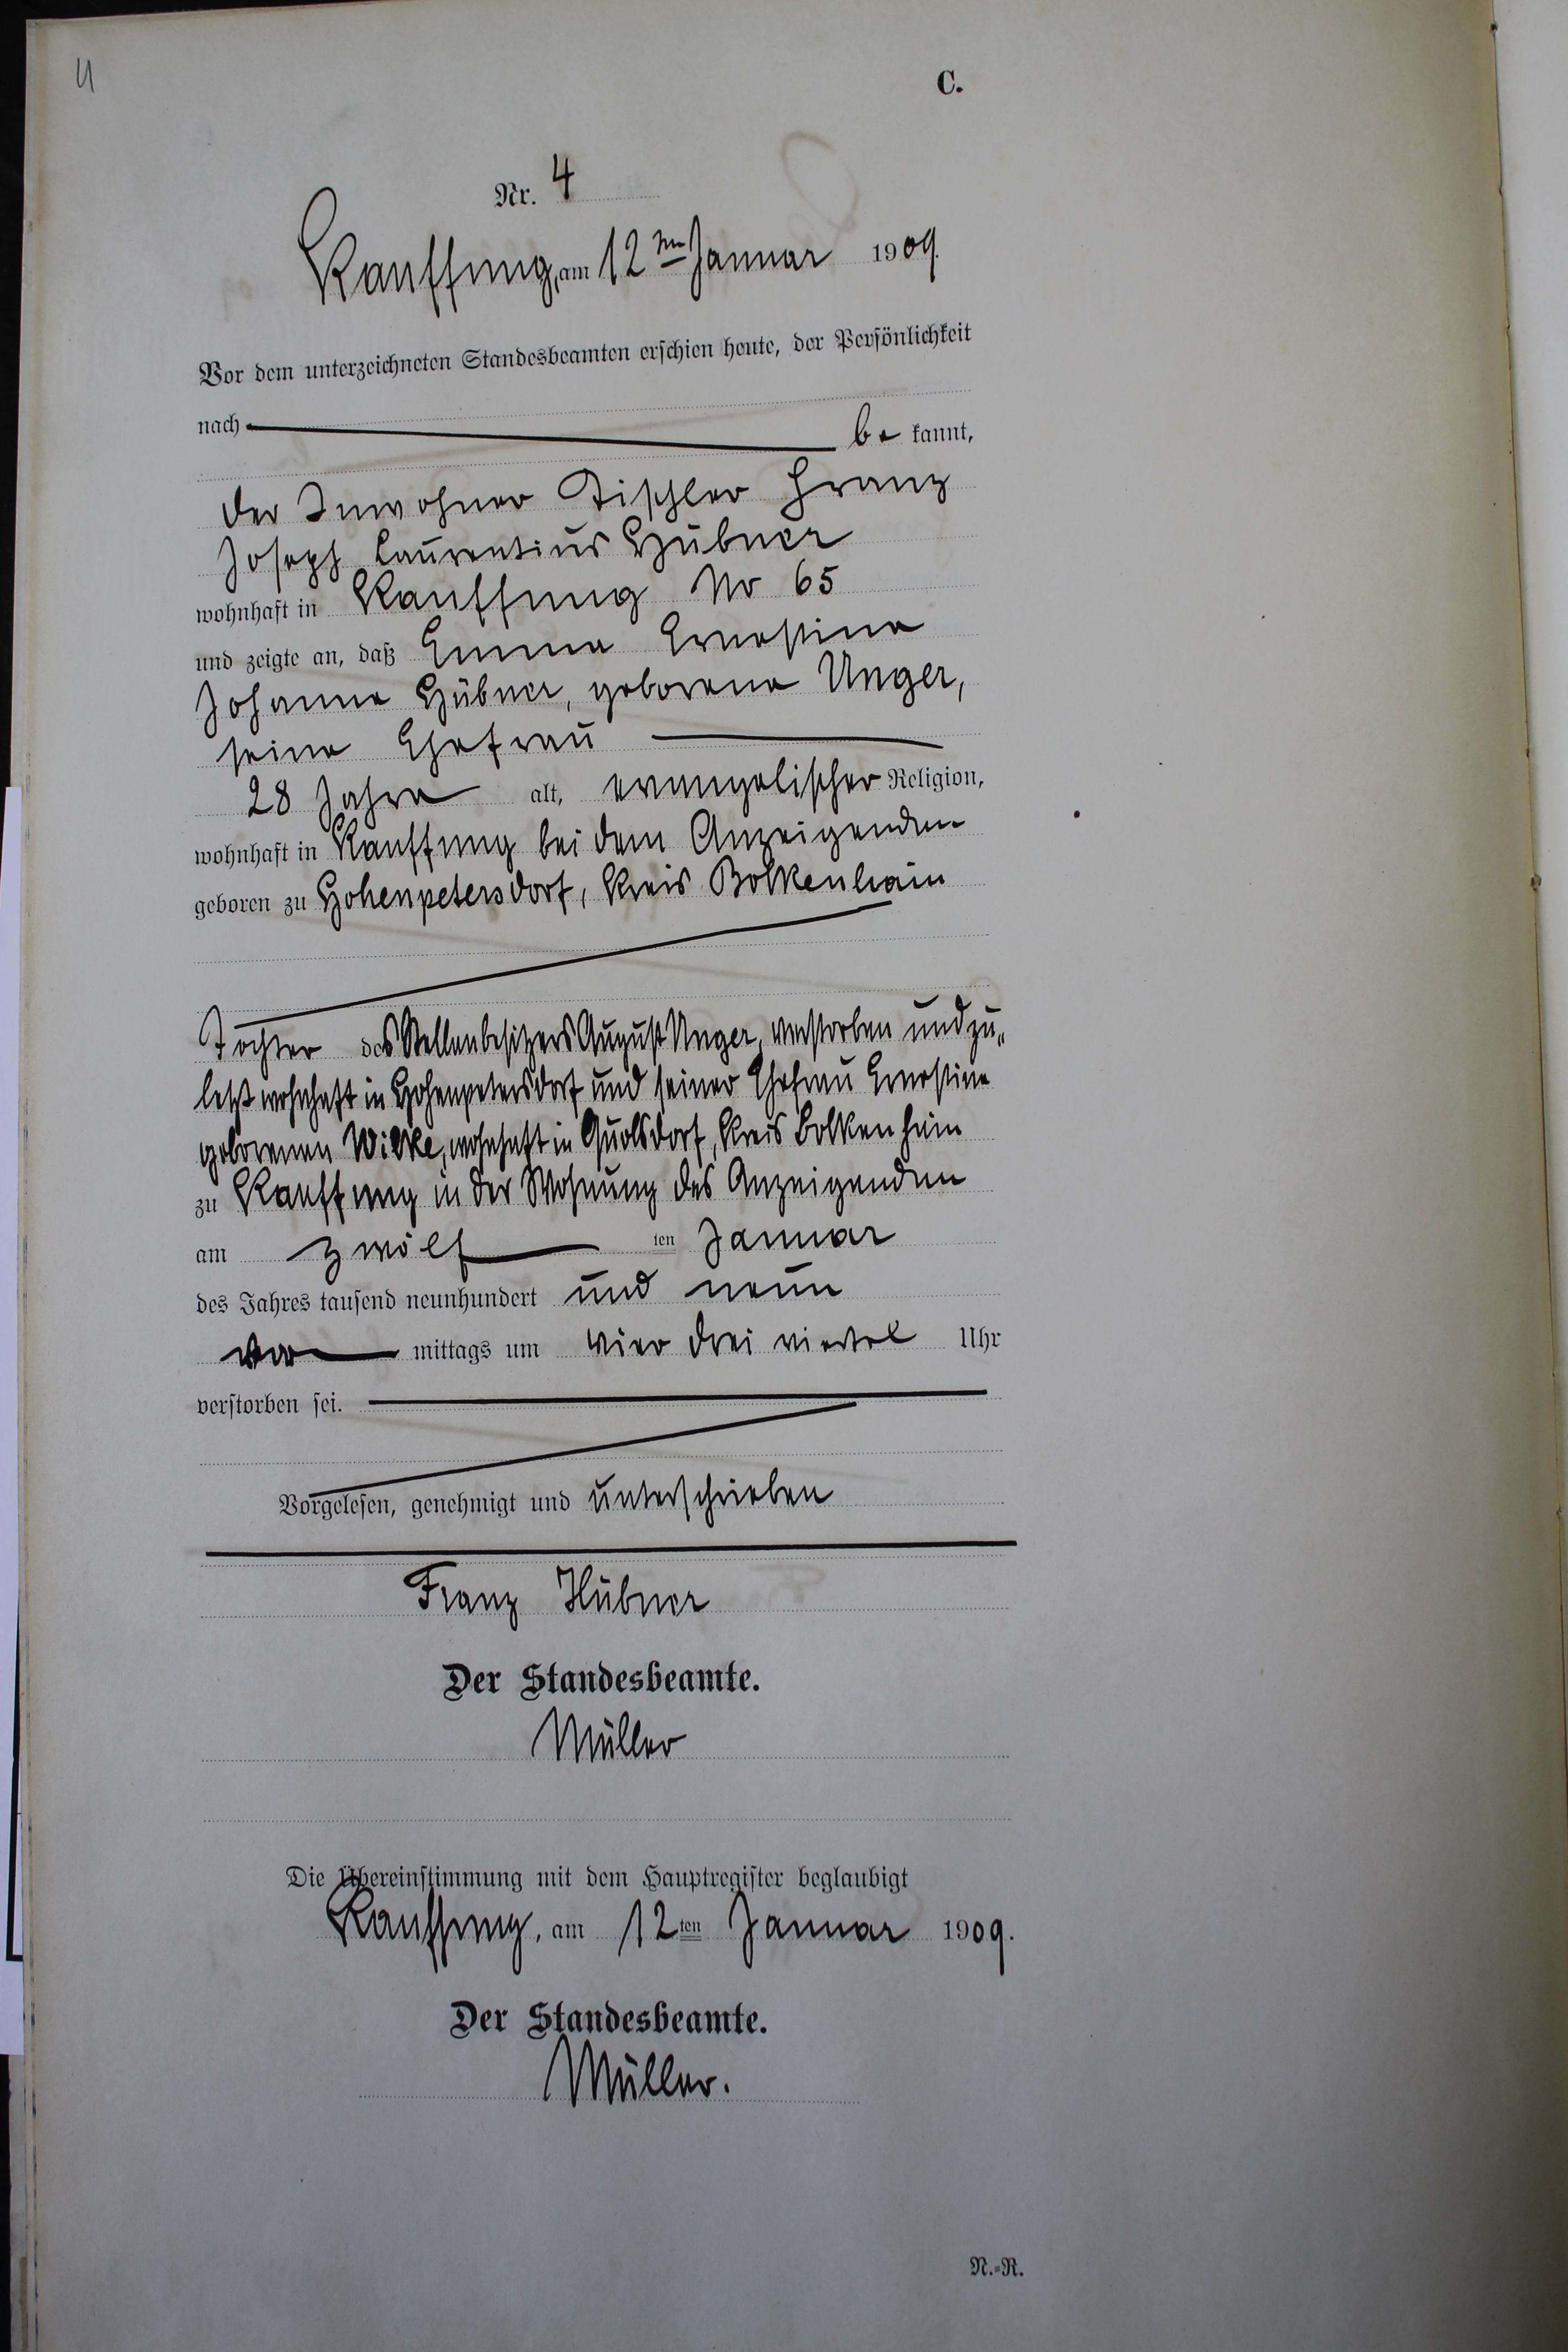 4
C.
Nr. 4
Kauffung, am 12ten Januar 1909.
Vor dem unterzeichneten Standesbeamten erschien heute, der Persönlichkeit
nach be kannt,
der Inwohner Tischler Franz
Joseph Laurentius Hübner
wohnhaft in Kauffung No 65
und zeigte an, daß Emma Ernestine
Johanne Hübner, geborene Unger,
seine Ehefrau
28 Jahre alt, evangelischer Religion,
wohnhaft in Kauffung bei dem Anzeigenden
geboren zu Hohenpetersdorf, Kreis Bolkenhain
Tochter des Stellenbesitzers August Unger, verstorben und zu„
letzt wohnhaft in Hohenpetersdorf und seiner Ehefrau Ernestine
geborenen Wilke, wohnhaft in Quolsdorf, Kreis Bolkenhain
zu Kauffung in der Wohnung des Anzeigenden
am zwölf ten Januar
des Jahres tausend neunhundert und neun
vor mittags um vier drei viertel Uhr
verstorben sei.
Vorgelesen, genehmigt und unterschrieben
Franz Hübner
Der Standesbeamte.
Müller
Die Übereinstimmung mit dem Hauptregister beglaubigt
Kauffung, am 12ten Januar 1909.
Der Standesbeamte.
Müller.
N.=R.